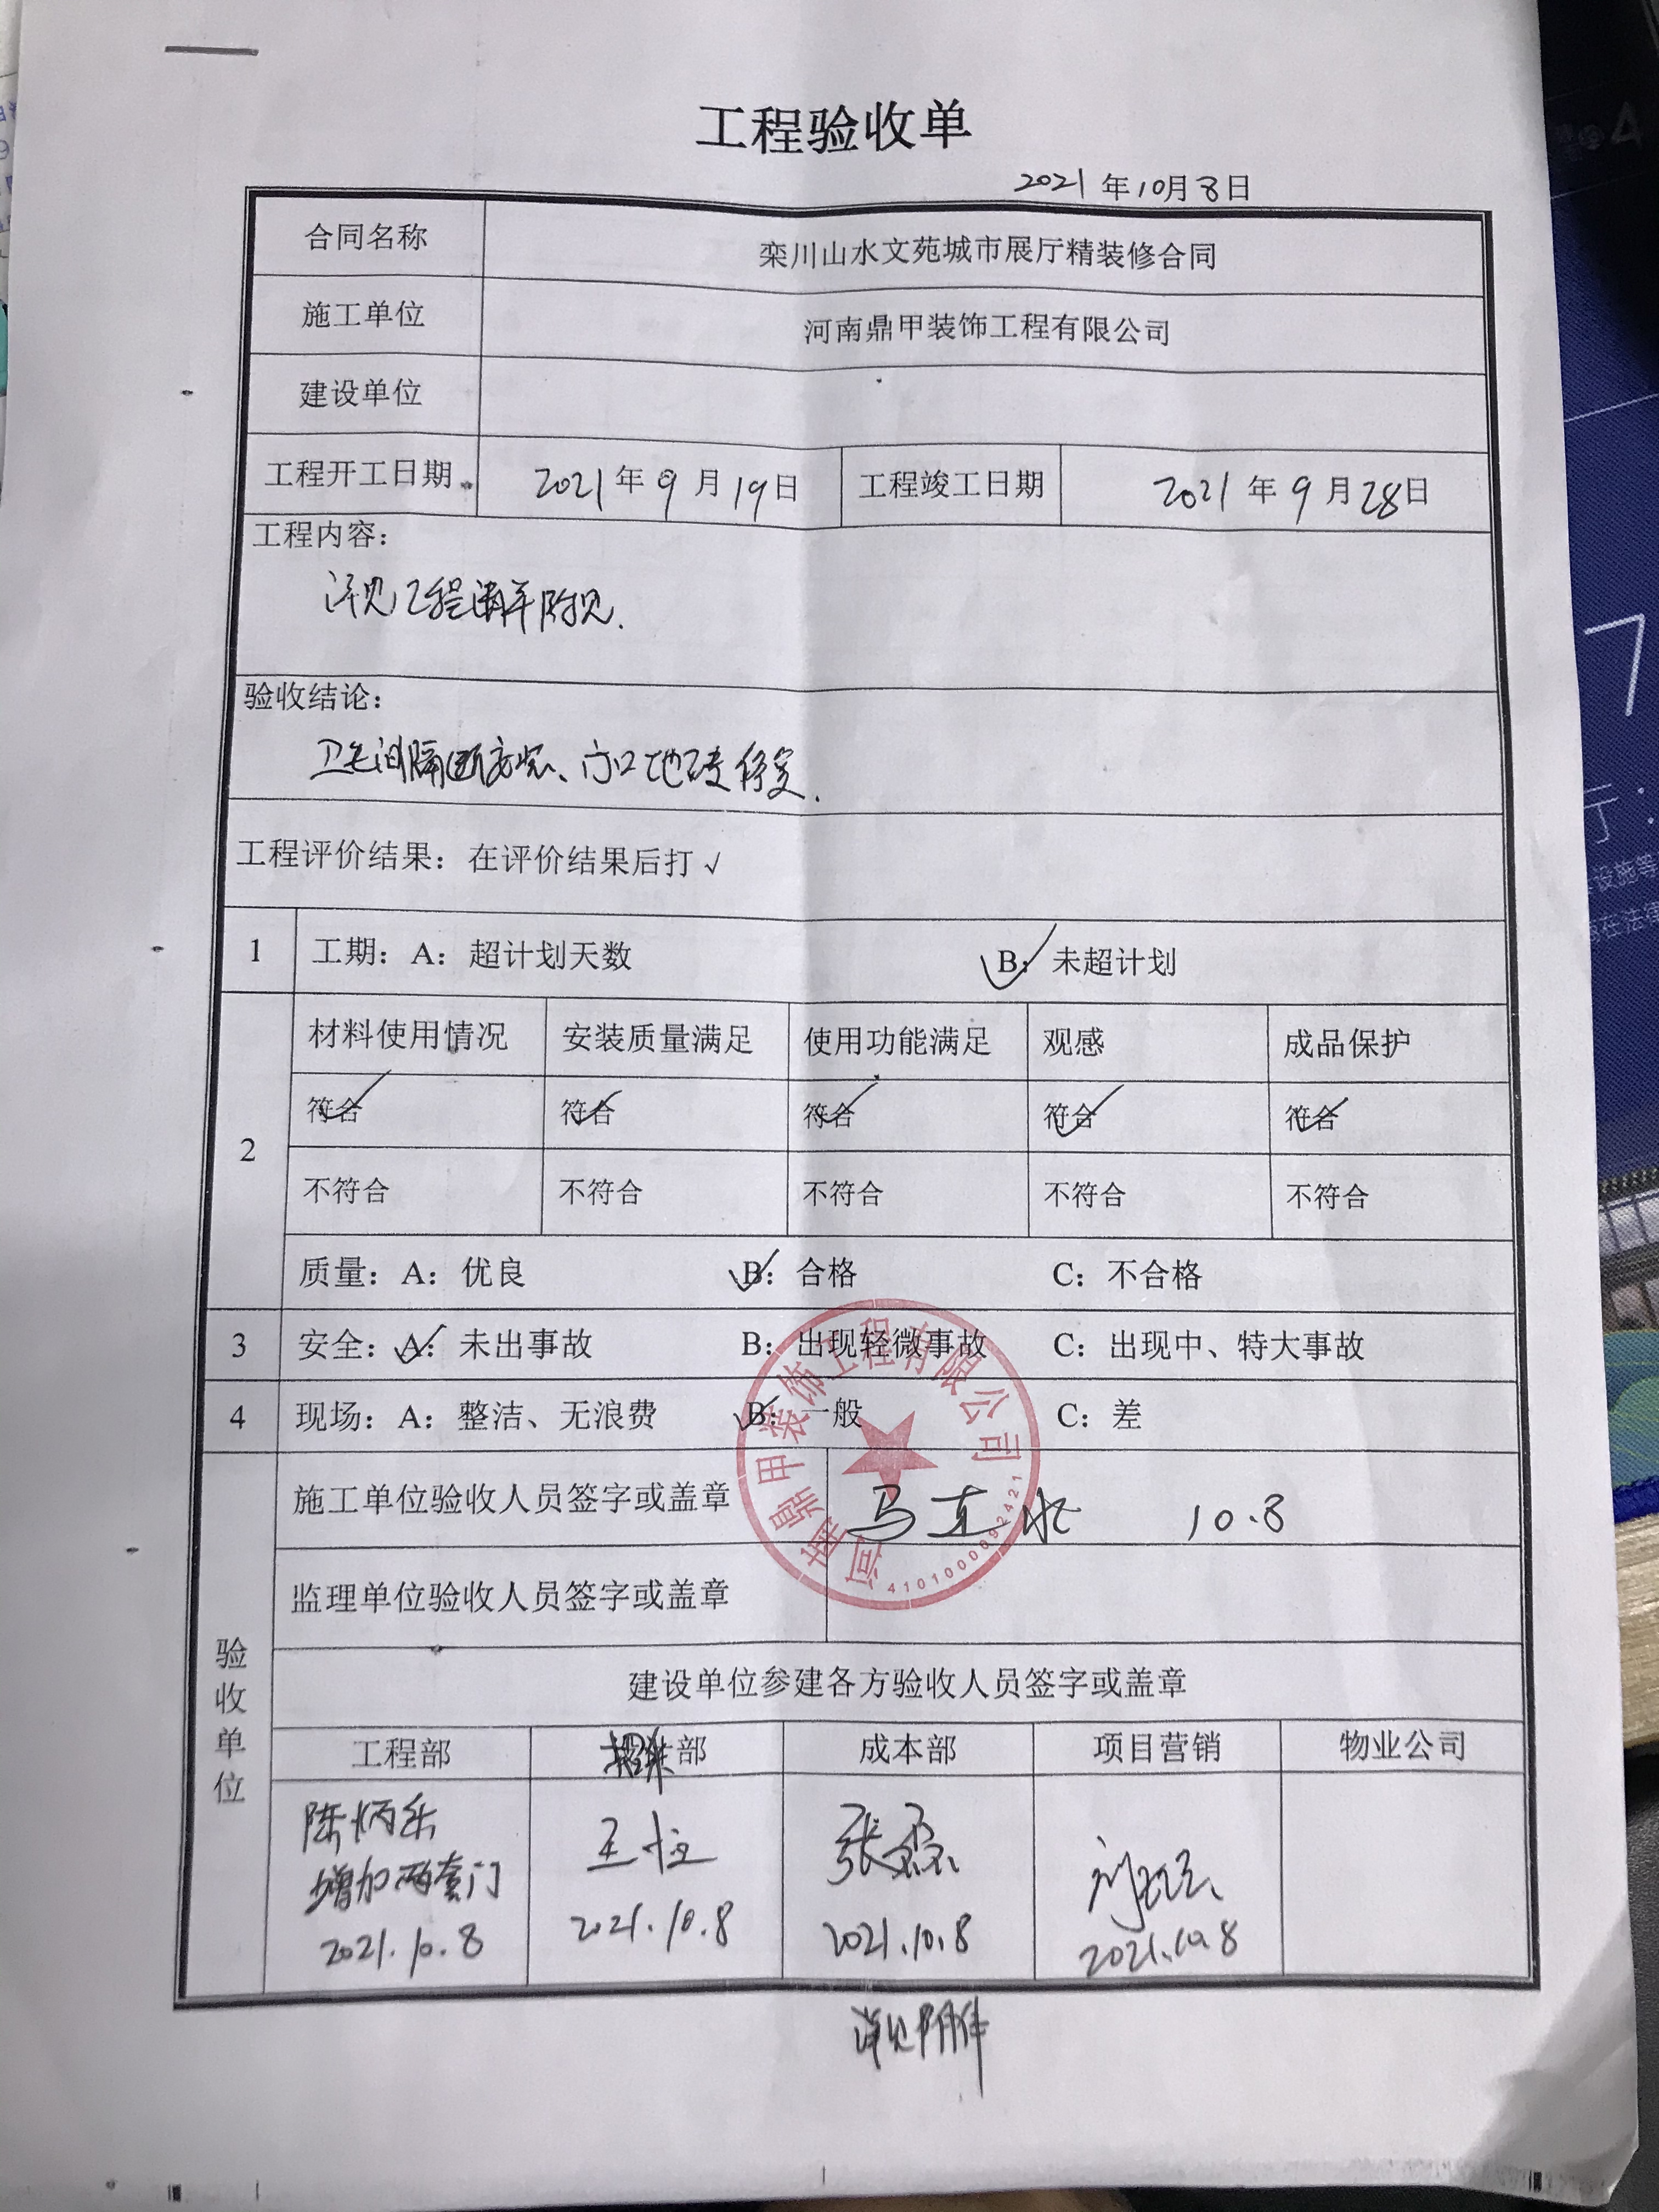 工程验收单
2021年10月8日
合同名称 栾川山水文苑城市展厅精装修合同
施工单位 河南鼎甲装饰工程有限公司
建设单位
工程开工日期 2021年9月19日 工程竣工日期 2021年9月28日
工程内容：
详见工程清单附见.
验收结论：
卫生间隔断安装、门口地砖修复.
工程评价结果：在评价结果后打√
1 工期：A：超计划天数 B：√ 未超计划
2 材料使用情况 安装质量满足 使用功能满足 观感 成品保护
符合√ 符合√ 符合√ 符合√ 符合√
不符合 不符合 不符合 不符合 不符合
质量：A：优良 B：√ 合格 C：不合格
3 安全：A：√ 未出事故 B：出现轻微事故 C：出现中、特大事故
4 现场：A：整洁、无浪费 B：√ 一般 C：差
验收单位
施工单位验收人员签字或盖章 10.8
河南鼎甲装饰工程有限公司
4101000092421
监理单位验收人员签字或盖章
建设单位参建各方验收人员签字或盖章
工程部 部 成本部 项目营销 物业公司
陈炳乐 张磊
增加两套门
2021.10.8 2021.10.8 2021.10.8 2021.10.8
详见附件
4
7
厅：
设施等
在法律